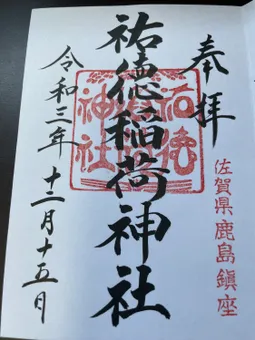 奉拝
佐賀県鹿島鎮座
祐徳稲荷神社
祐徳
神社
令和三年十一月十五日